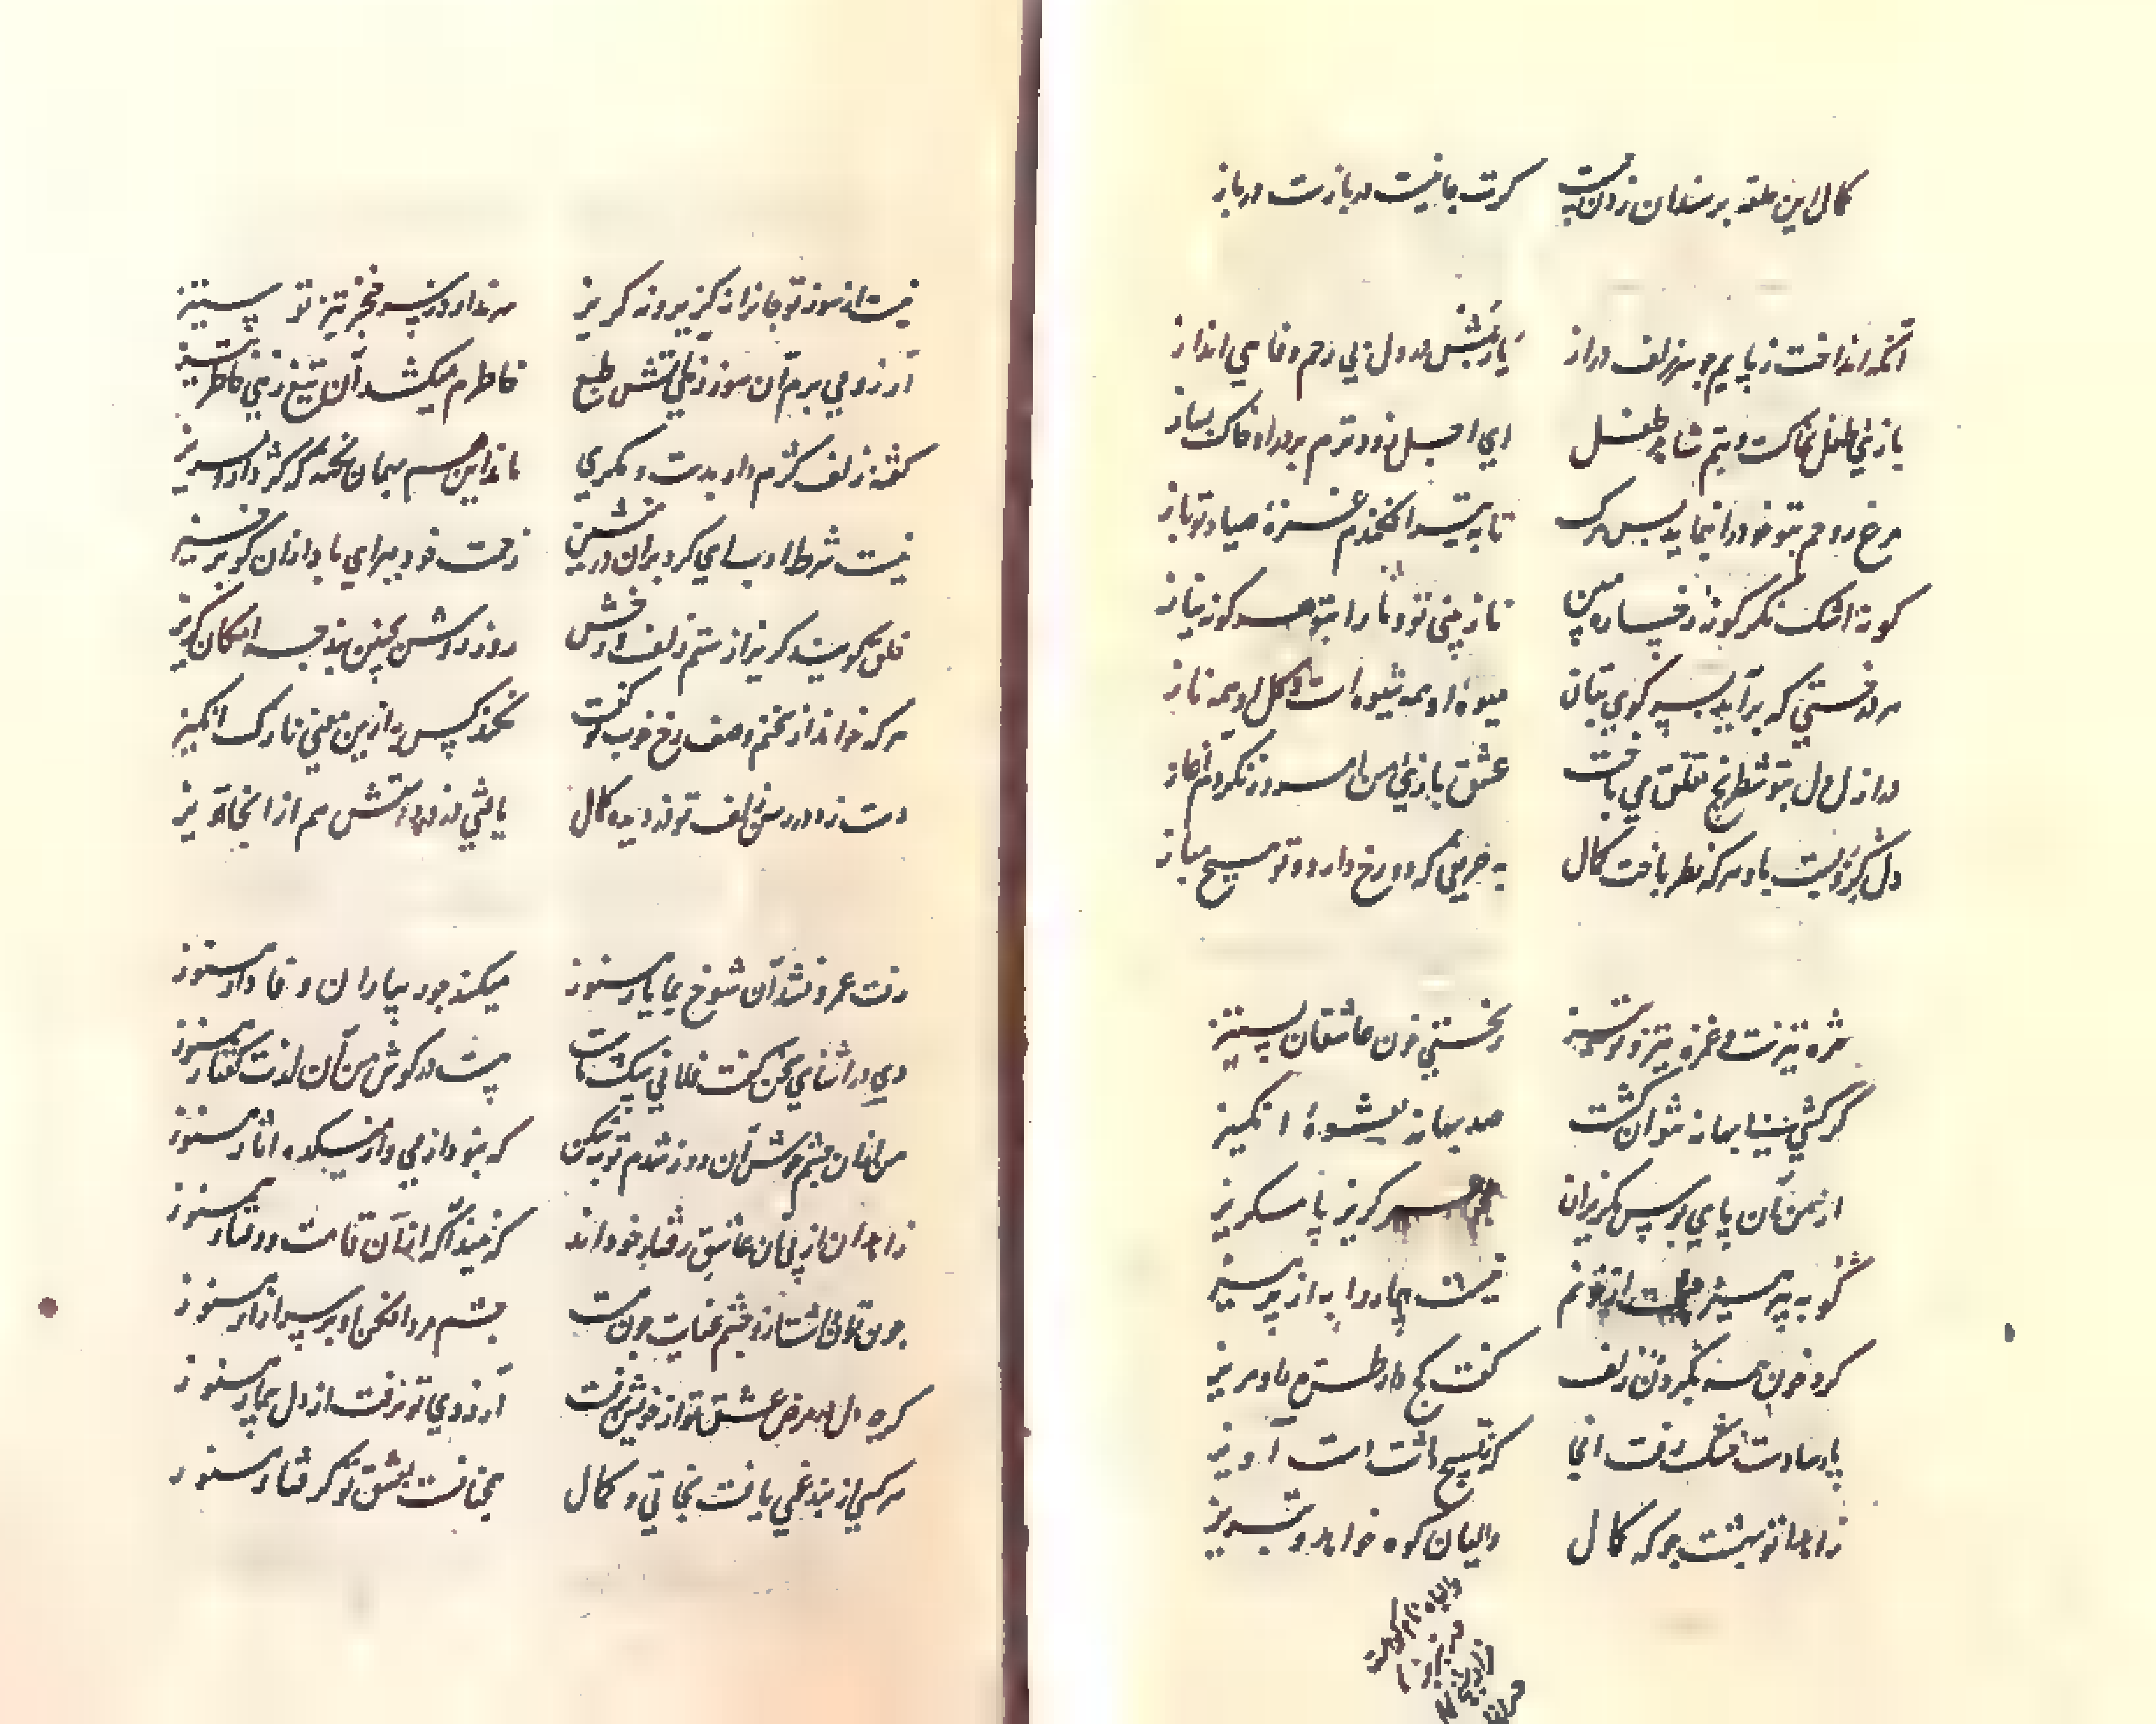 کمال این حلقه بر سندان زدن چیست کرت جانیست در بازست در باز
آنکه انداخت ز پایم چو سر زلف دراز یا ربش در دل بی رحم وفایی انداز
بازی طفل بخاکست و بتم شاهد طفل ای اجل زودترم بر در او خاک بساز
مرغ روحم بتو خود را بنماید پس مرگ تا به پیشت افکندم غمزهٔ صیاد تو باز
گونهٔ اشک نگر گونهٔ رخساره مبین ناز بینی تو و ما را بتو هر گونه نیاز
هر درختی که برآید بسر کوی بتان میوهٔ او همه شیوه است و گل او همه ناز
در ازل دل بتو شطرنج تعلق می باخت عشق بازی من امروز نکردم آغاز
دل گرو نیست بتو هر که نظر باخت کمال به حریفی که دو رخ دارد و تو هیچ مباز
مژه تیزست و غمزه تیز و تو تیز ریختی خون عاشقان بستیز
گر کشی بی بهانه نتوان کشت صد بهانه بشیوهٔ انگیز
از من آن پای بوس گریزان گریز پا مگریز
گو به پرهیز نیست بیمار را به از پرهیز
کرد خون همه بگردن زلف گفت کج دار طشتم و مریز
پارسا دست خشک رفت آنجا که تسبیح داشت دست آویز
زاهدا تو بهشت جو که کمال ولیان کوه خواهد و تبریز
نیست از سوز تو جانرا نه گزیر و نه گریز سر ندارد ز سر خنجر تیز تو ستیز
آرزو می برم آن سوز ز طبع آتش طبع خاطرم میکشد آن تیغ زنی خاطر تیز
گفته زلف کژم دار بدست و مگری ماند این چشم همان نکته که کژ دار و مریز
نیست شرط ادب سایی گرد بران در منشین زحمت خود ببر ای باد ازان کو برخیز
خلق گویند گریز از ستم زلف و رخش روز روشن بچنین بند چه امکان گریز
هر که خواند از سخنم وصف رخ خوب تو گفت نکند کس به ازین معنی نازک انگیز
دست زد در سر زلف تو ندیده کمال یافتی دزد در آتش هم ازانجا آویز
رفت عمر و نشد آن شوخ بما یار هنوز میکند جور بیاران وفادار هنوز
دی در اثنای سخن گفت فلانی سگ ماست هست در گوش من آن لذت گفتار هنوز
من ازان چشم خوش آن روز شدم توبه شکن که نبود از می و از میکده آثار هنوز
زاهدان از پی آن عاشق رفتار خود اند که ندیدند اگر آن قامت و رفتار هنوز
چون توانی که نشانی ز دو چشم عنایت چون هست چشم مردافکن او بر سر آزار هنوز
گرچه دل در مرض عشق تو از خویش برفت آرزوی تو نرفت از دل بیمار هنوز
هر کسی از بند غمی یافت نجاتی و کمال همچنانست بعشق تو گرفتار هنوز